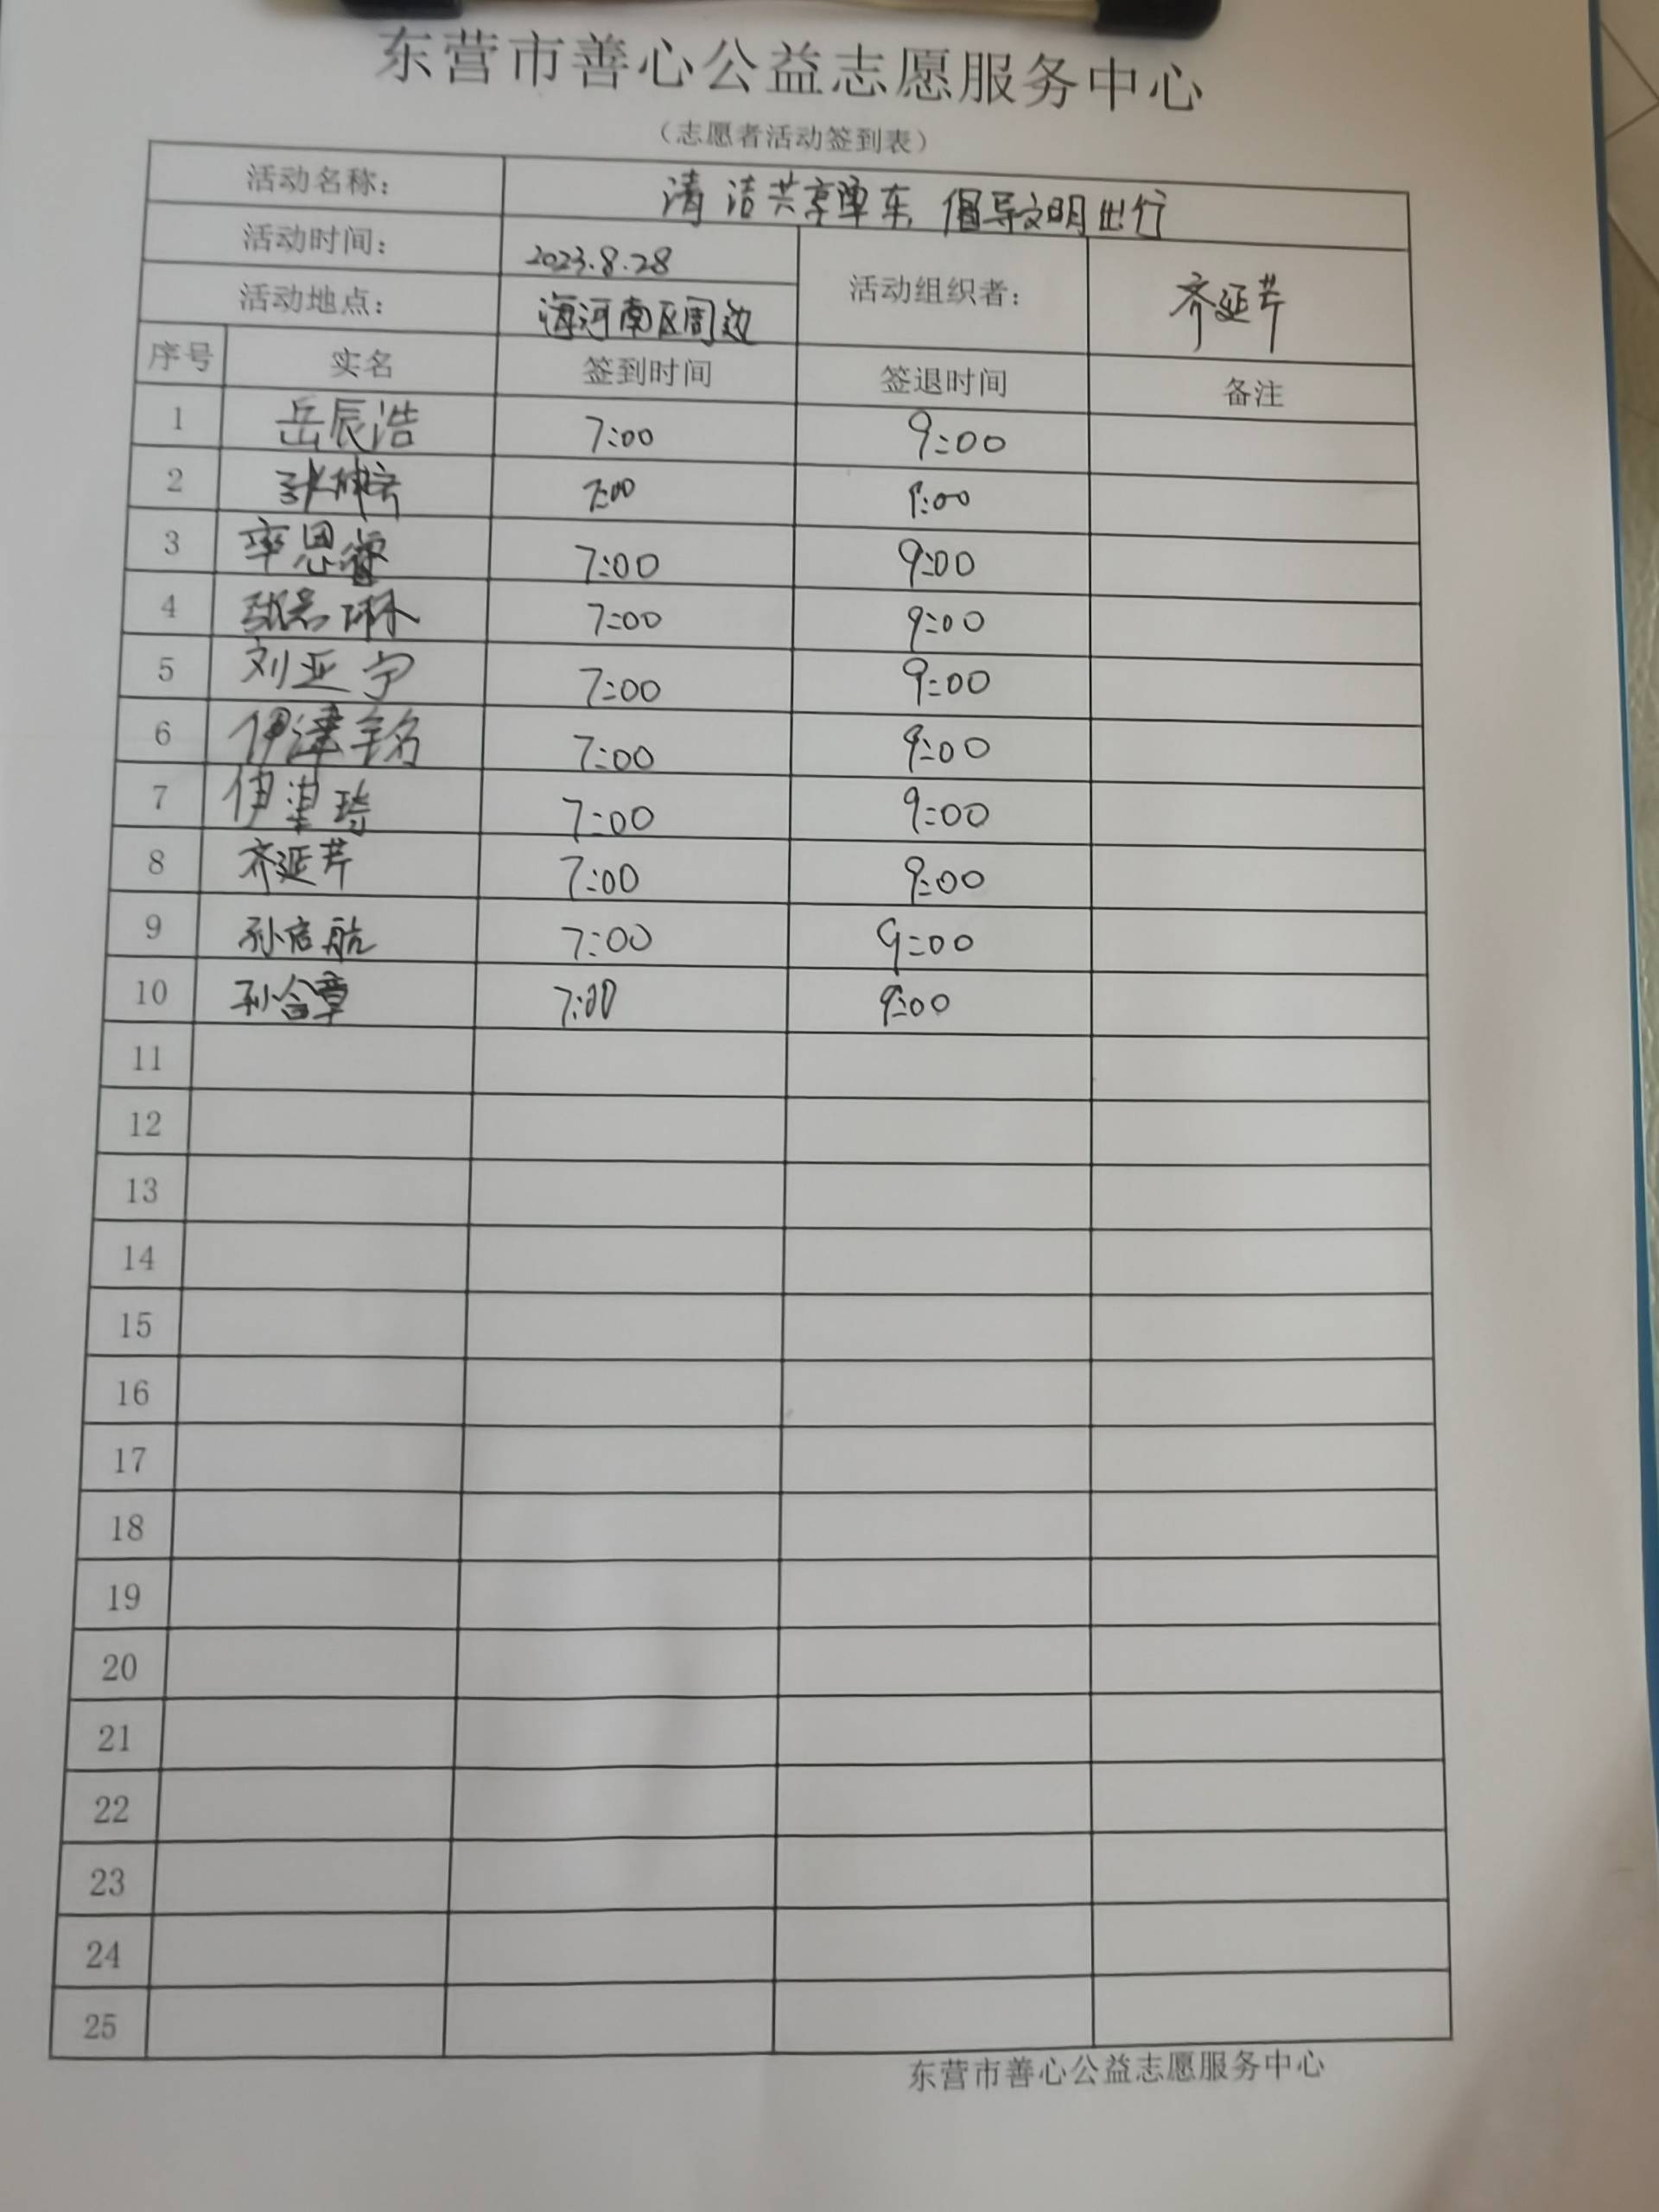 东营市善心公益志愿服务中心
（志愿者活动签到表）
活动名称： 清洁共享单车 倡导文明出行
活动时间： 2023.8.28 活动组织者： 齐延芹
活动地点： 海河南区周边
序号 实名 签到时间 签退时间 备注
1 岳辰浩 7:00 9:00
2 7:00 9:00
3 7:00 9:00
4 7:00 9:00
5 刘亚宁 7:00 9:00
6 伊津铭 7:00 9:00
7 7:00 9:00
8 齐延芹 7:00 9:00
9 孙启航 7:00 9:00
10 孙含章 7:00 9:00
11
12
13
14
15
16
17
18
19
20
21
22
23
24
25
东营市善心公益志愿服务中心